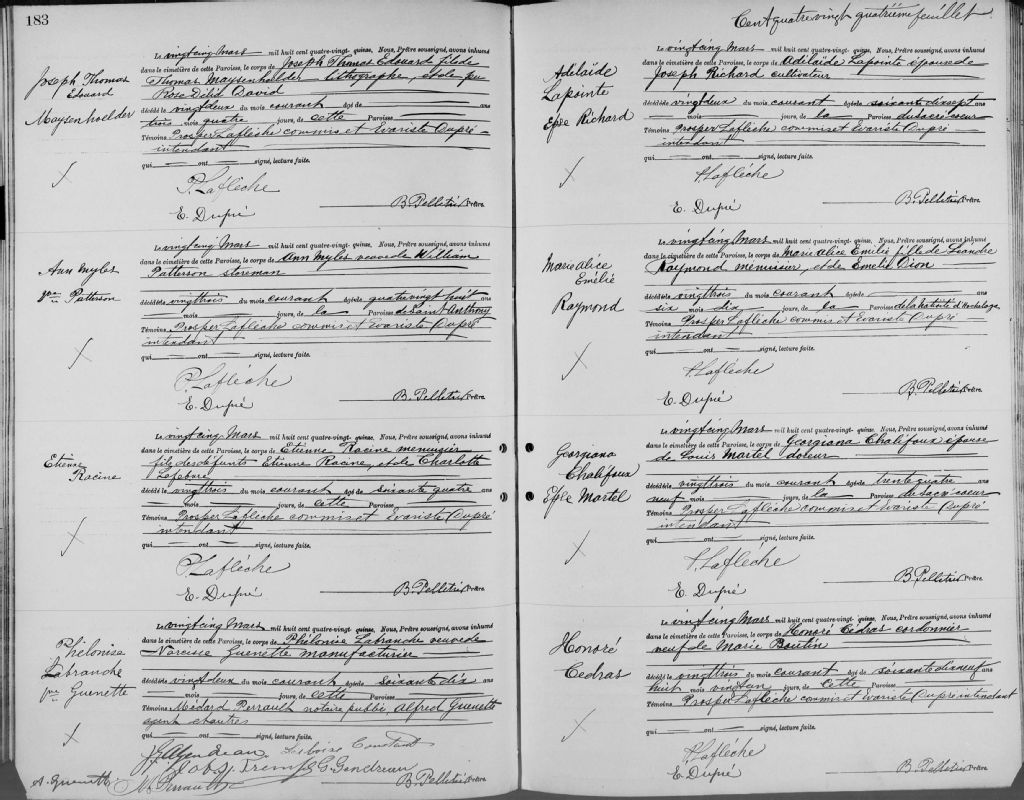 183
Joseph Thomas
Edouard
Maysenhoelder
Le vingtcinq Mars mil huit cent quatre-vingt-quinze, Nous, Prêtre soussigné, avons inhumé
dans le cimetière de cette Paroisse, le corps de Joseph Thomas Edouard fils de
Thomas Maysenhoelder lithographe, et de feu
Rose Délié David
décédé le vingtdeux du mois courant âgé de ans
trois mois quatre jours, de cette Paroisse
Témoins Prosper Laflèche commis et Evariste Dupré
intendant
qui ont signé, lecture faite.
P. Laflèche
E. Dupré
B. Pelletier Prêtre.
Ann Myles
Vve Patterson
Le vingtcinq Mars mil huit cent quatre-vingt-quinze, Nous, Prêtre soussigné, avons inhumé
dans le cimetière de cette Paroisse, le corps de Ann Myles veuve de William
Patterson storeman
décédée vingttrois du mois courant âgée de quatre vingt huit ans
mois jours, de la Paroisse de Saint Anthony
Témoins Prosper Laflèche commis et Evariste Dupré
intendant
qui ont signé, lecture faite.
P. Laflèche
E. Dupré
B. Pelletier Prêtre.
Etienne
Racine
Le vingtcinq Mars mil huit cent quatre-vingt-quinze, Nous, Prêtre soussigné, avons inhumé
dans le cimetière de cette Paroisse, le corps de Etienne Racine menuisier
fils des défunts Etienne Racine, et de Charlotte
Lefebvre
décédé le vingttrois du mois courant âgé de soixante quatre ans
mois jours, de cette Paroisse
Témoins Prosper Laflèche commis et Evariste Dupré
intendant
qui ont signé, lecture faite.
P. Laflèche
E. Dupré
B. Pelletier Prêtre.
Philonise
Labranche
Vve Guenette
Le vingtcinq Mars mil huit cent quatre-vingt-quinze, Nous, Prêtre soussigné, avons inhumé
dans le cimetière de cette Paroisse, le corps de Philonise Labranche veuve de
Narcisse Guenette manufacturier
décédée vingtdeux du mois courant âgée de soixante dix ans
mois jours, de cette Paroisse
Témoins Médard Perrault notaire public, Alfred Guenette
agent et autres
qui ont signé, lecture faite.
J. Gendreau
G. Gendreau
A. Guenette
M. Perrault
B. Pelletier Prêtre.
Cent quatre vingt quatrième feuillet
Adélaïde
Lapointe
Epse Richard
Le vingtcinq Mars mil huit cent quatre-vingt-quinze, Nous, Prêtre soussigné, avons inhumé
dans le cimetière de cette Paroisse, le corps de Adélaïde Lapointe épouse de
Joseph Richard cultivateur
décédée vingtdeux du mois courant âgée de soixante dixsept ans
mois jours, de la Paroisse du sacré coeur
Témoins Prosper Laflèche commis et Evariste Dupré
intendant
qui ont signé, lecture faite.
P. Laflèche
E. Dupré
B. Pelletier Prêtre.
Marie Alice
Emélié
Raymond
Le vingtcinq Mars mil huit cent quatre-vingt-quinze, Nous, Prêtre soussigné, avons inhumé
dans le cimetière de cette Paroisse, le corps de Marie Alice Emélie fille de Léandre
Raymond menuisier, et de Emélie Dion
décédée vingttrois du mois courant âgée de ans
six mois dix jours, de la Paroisse de la nativité d'Hochelaga
Témoins Prosper Laflèche commis et Evariste Dupré
intendant
qui ont signé, lecture faite.
P. Laflèche
E. Dupré
B. Pelletier Prêtre.
Georgiana
Chalifoux
Epse Martel
Le vingtcinq Mars mil huit cent quatre-vingt-quinze, Nous, Prêtre soussigné, avons inhumé
dans le cimetière de cette Paroisse, le corps de Georgiana Chalifoux épouse
de Louis Martel doreur
décédée vingttrois du mois courant âgée de trente quatre ans
neuf mois jours, de la Paroisse du sacré coeur
Témoins Prosper Laflèche commis et Evariste Dupré
intendant
qui ont signé, lecture faite.
P. Laflèche
E. Dupré
B. Pelletier Prêtre.
Honoré
Cedras
Le vingtcinq Mars mil huit cent quatre-vingt-quinze, Nous, Prêtre soussigné, avons inhumé
dans le cimetière de cette Paroisse, le corps de Honoré Cédras cordonnier
veuf de Marie Boutin
décédé le vingttrois du mois courant âgé de soixante dixneuf ans
huit mois vingt un jours, de cette Paroisse
Témoins Prosper Laflèche commis et Evariste Dupré intendant
qui ont signé, lecture faite.
P. Laflèche
E. Dupré
B. Pelletier Prêtre.